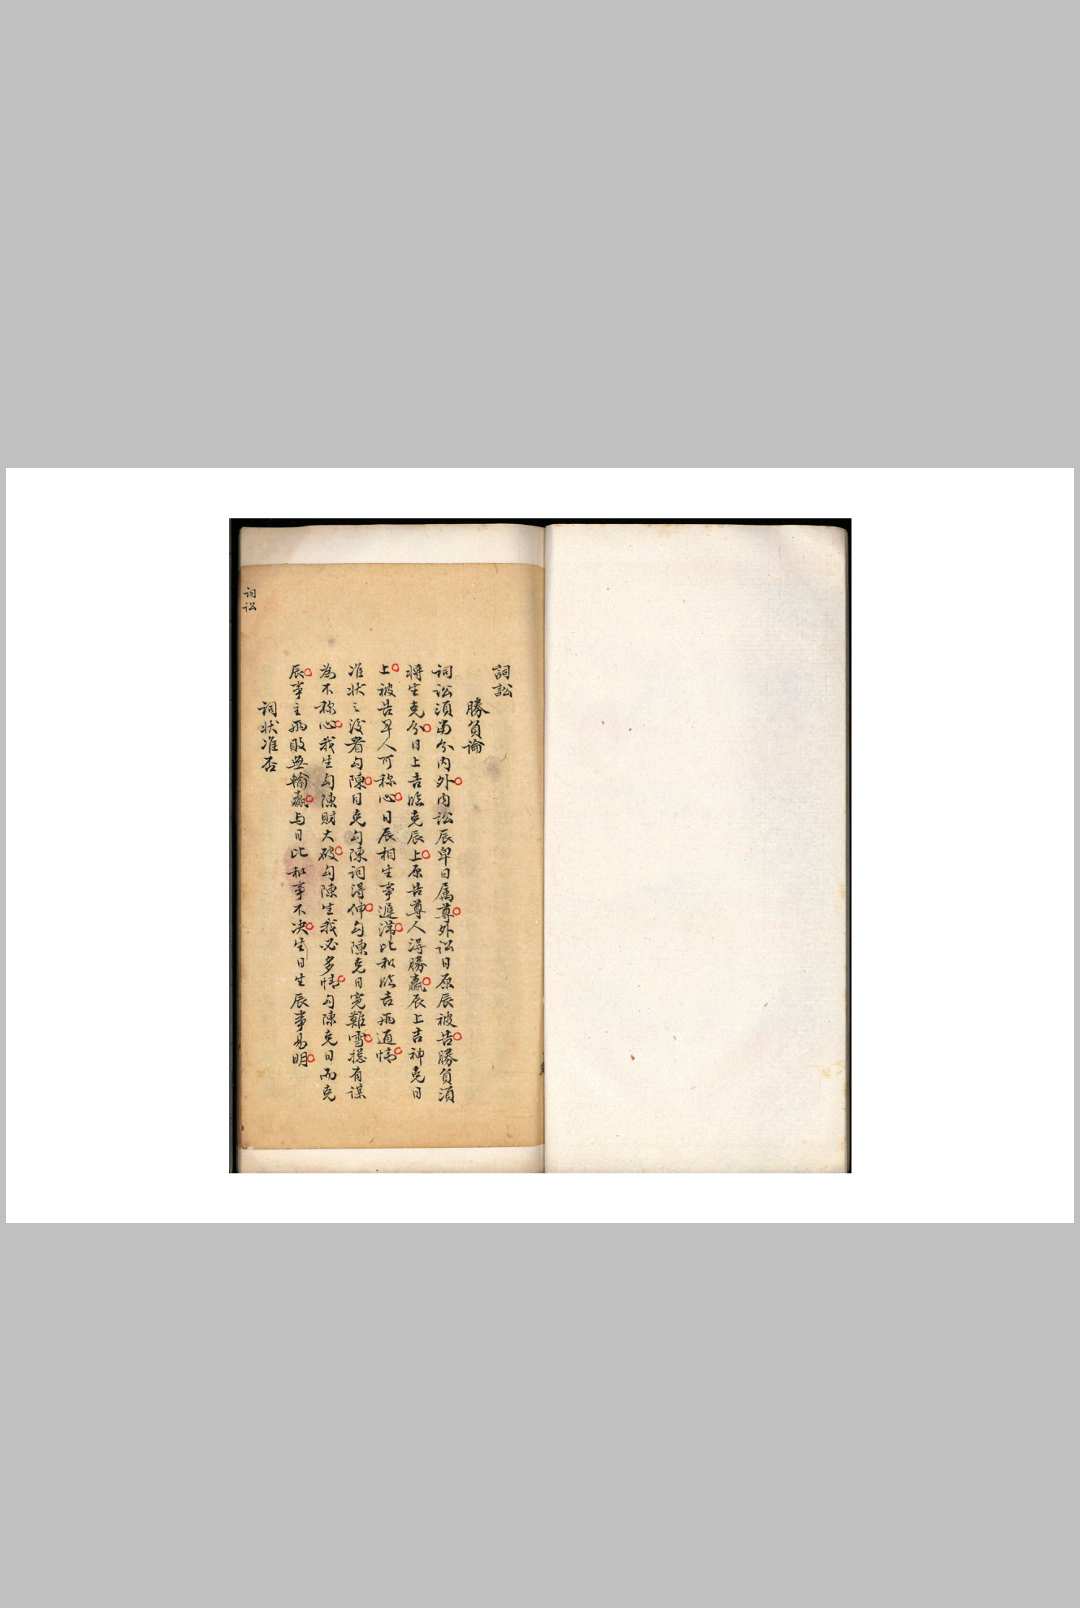 詞訟
勝負論
詞訟須當分內外內訟辰卑日属尊外訟日原辰被告勝負須
將生克分日上吉臨克辰上原告尊人得勝贏辰上吉神克日
上被告卑人可称心日辰相生事遲滯比和臨吉兩通情
准状之後看勾陳日克勾陳詞得伸勾陳克日寃難雪揔有謀
為不称心我生勾陳財大破勾陳生我必多情勾陳克日而克
辰事主兩敗無輸贏与日比和事不决生日生辰事易明
詞状准否
词讼